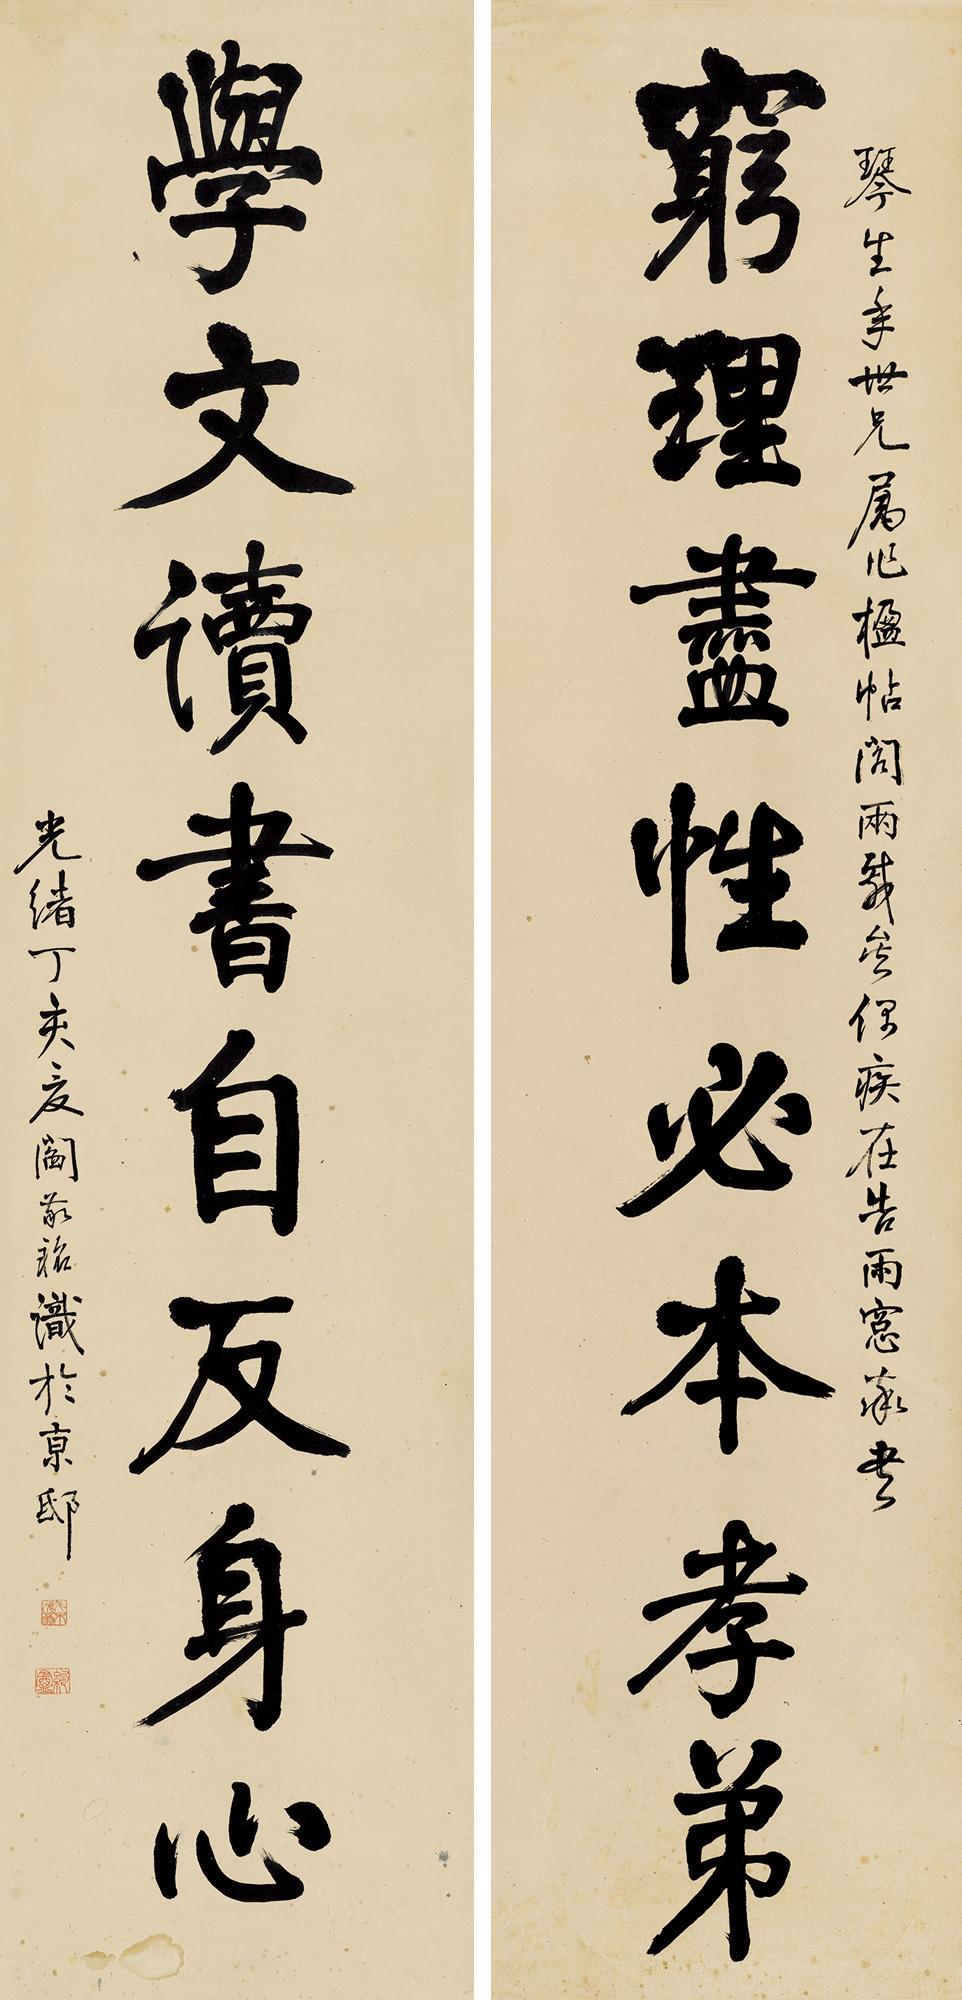 琴生年世兄屬作楹帖閣兩載矣偶疾在告雨窓率書
窮理盡性必本孝弟
學文讀書自反身心
光緒丁亥夏閻敬銘識於京邸